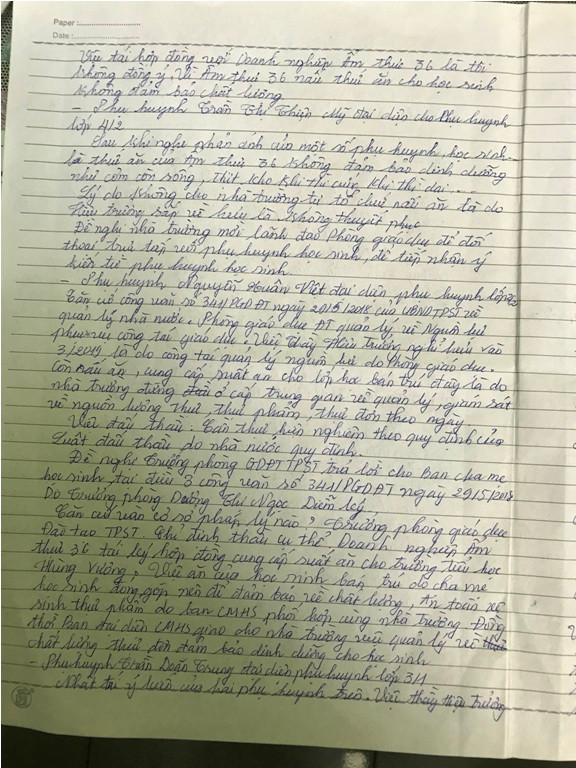 Paper :
Date :
Việc tái hợp đồng với Doanh nghiệp Ẩm thực 36 là thì
không đồng ý, Vì Ẩm thực 36 nấu thức ăn cho học sinh
không đảm bảo chất lượng.
- Phụ huynh Trần Thị Thiện Mỹ đại diện cho Phụ huynh
lớp 4/2
Sau khi nghe phản ánh của một số phụ huynh, học sinh
là thức ăn của Ẩm thực 36 không đảm bảo dinh dưỡng
như cơm còn sống, thịt kho khi thì cứng, khi thì dai....
Lý do không cho nhà trường tự tổ chức nấu ăn là do
Hiệu trưởng sắp về hưu là không thuyết phục
Đề nghị nhà trường mời lãnh đạo Phòng giáo dục để đối
thoại trực tiếp với phụ huynh học sinh, để tiếp nhận ý
kiến từ phụ huynh học sinh.
- Phụ huynh Nguyễn Xuân Việt đại diện phụ huynh lớp
Căn cứ công văn số 341/PGDĐT ngày 29/5/2018 của UBND TPST về
quản lý nhà nước. Phòng giáo dục ĐT quản lý về Nguồn lực
phục vụ công tác giáo dục. Việc Thầy Hiệu trưởng nghỉ hưu vào
3/2019 là do công tác quản lý nguồn lực do Phòng giáo dục.
Còn nấu ăn, cung cấp suất ăn cho lớp học bán trú đây là do
nhà trường đứng đầu ở cấp trung gian về quản lý, giám sát
về nguồn lượng thực thực phẩm, thực đơn theo ngày.
Việc đấu thầu: Cần thực hiện nghiêm theo quy định của
Luật đấu thầu do nhà nước quy định.
Đề nghị Trưởng phòng GDĐT TPST trả lời cho Ban cha mẹ
học sinh tại điều 3 công văn số 341/PGDĐT ngày 29/5/2018
Do Trưởng phòng Dương Thị Ngọc Diễm ký,
Căn cứ vào cơ sở pháp lý nào? Trưởng phòng giáo dục
Đào tạo TPST. Chỉ định thầu cụ thể Doanh nghiệp Ẩm
thực 36 tái ký hợp đồng cung cấp suất ăn cho trường tiểu học
Hùng Vương, Việc ăn của học sinh bán trú do cha mẹ
học sinh đóng góp nên để đảm bảo về chất lượng, An toàn vệ
sinh thực phẩm do ban CMHS phối hợp cùng nhà trường. Đồng
thời Ban đại diện CMHS giao cho nhà trường việc quản lý về
chất lượng thực đơn đảm bảo dinh dưỡng cho học sinh
- Phụ huynh Trần Doãn Trung đại diện phụ huynh lớp 3/1
Nhất trí ý kiến của hai phụ huynh trên. Việc thầy hiệu trưởng